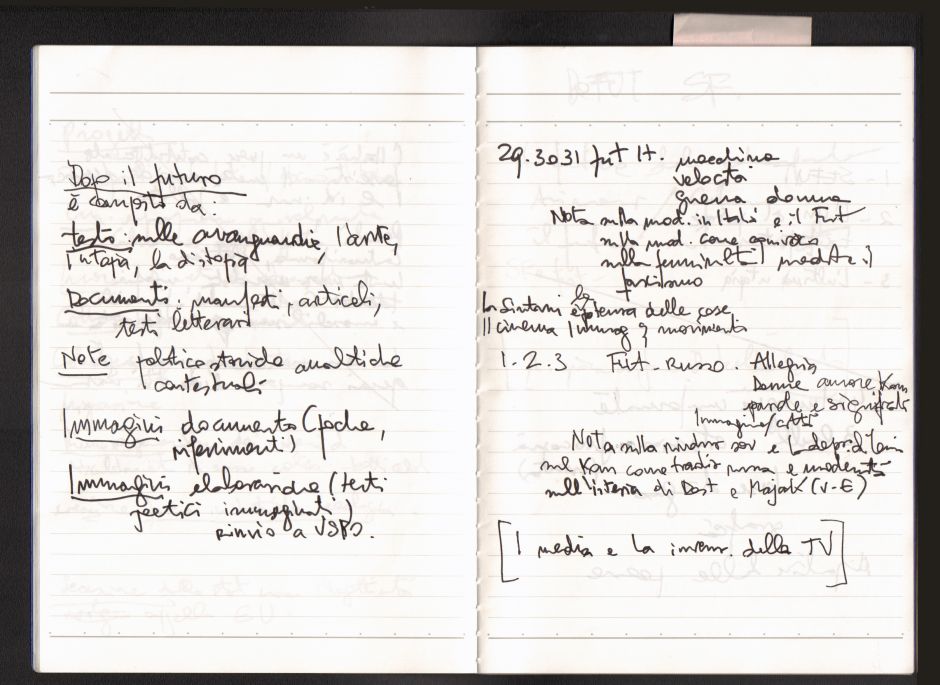 Dopo il futuro
è composto da:
testi: sulle avanguardie, l'arte,
l'utopia, la distopia
Documenti: manifesti, articoli,
testi letterari
Note politico storiche analitiche
contestuali
Immagini documento (poche,
riferimenti)
Immagini elaboranche (testi
poetici immaginati)
rinvio a
29.3031 fut It. macchina
velocità
guerra donna
Nota sulla mod. in Italia e il Fut
sulla mod. come
sulla femminilità
fascismo
delle cose
Il cinema Immag movimento
1.2.3 Fut-Russo. Allegria
Donne amore Kom
parole e significato
Immagine/città
Nota sulla sov e
sul Kom come russa e
sull'isteria di Dost e Majak (V-E)
[I media e la inven. della TV]